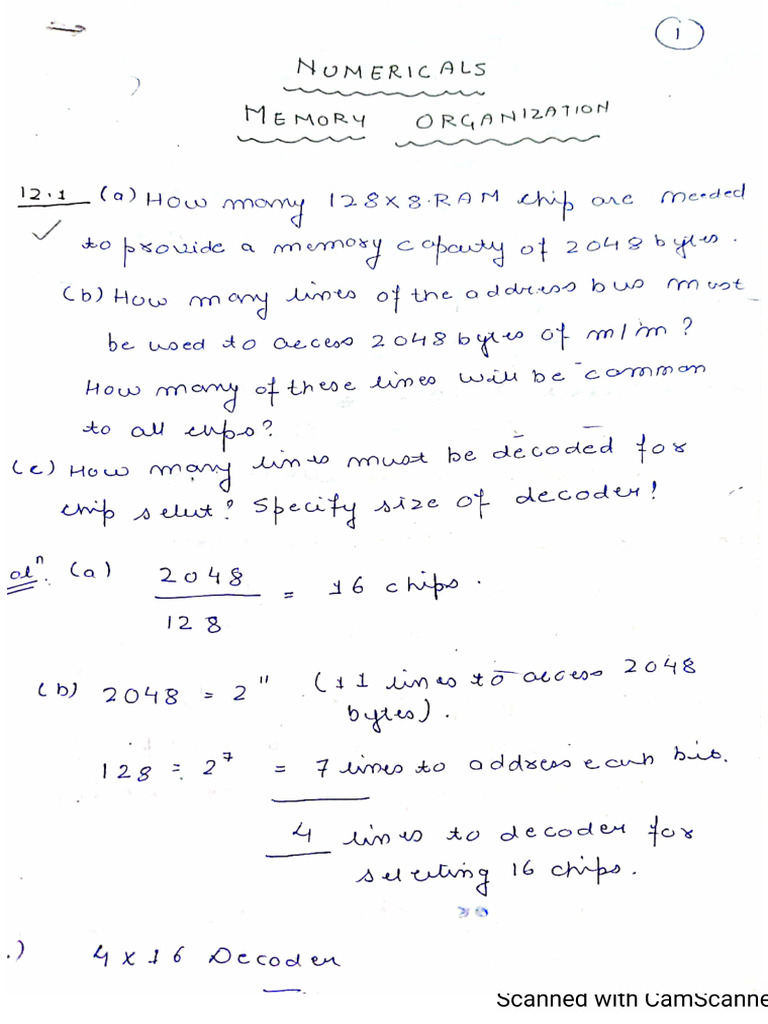 1
NUMERICALS
MEMORY ORGANIZATION
12.1 (a) How many 128x8 RAM chip are needed
to provide a memory capacity of 2048 bytes.
(b) How many lines of the address bus must
be used to access 2048 bytes of m/m ?
How many of these lines will be common
to all chips?
(c) How many lines must be decoded for
chip select? Specify size of decoder!
olⁿ. (a) 2048
128 = 16 chips.
(b) 2048 = 2¹¹ (11 lines to access 2048
bytes).
128 = 2⁷ = 7 lines to address each bit.
4 lines to decoder for
selecting 16 chips.
.) 4 x 16 Decoder
Scanned with CamScanne